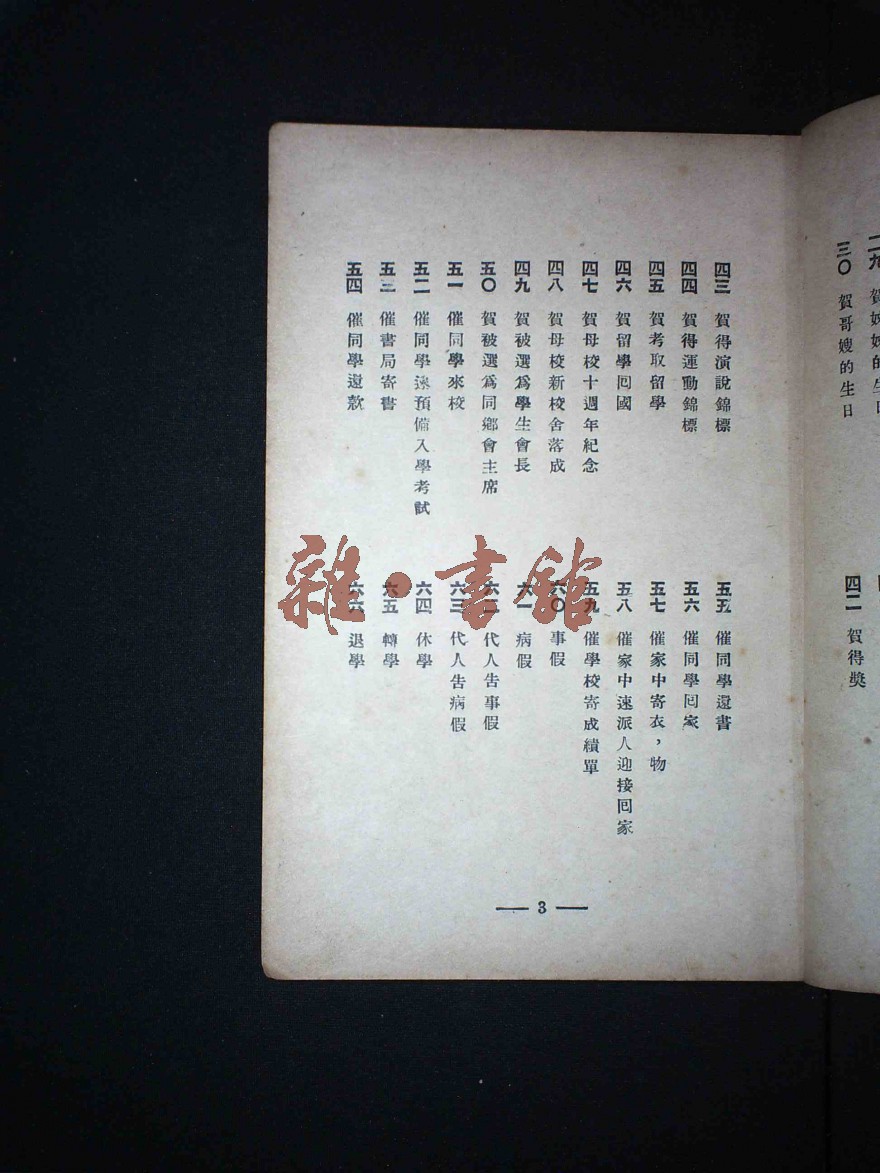 二九 賀姊姊的生日
三〇 賀哥嫂的生日
四二 賀得獎
四三 賀得演說錦標
四四 賀得運動錦標
四五 賀考取留學
四六 賀留學回國
四七 賀母校十週年紀念
四八 賀母校新校舍落成
四九 賀被選爲學生會長
五〇 賀被選爲同鄉會主席
五一 催同學來校
五二 催同學速預備入學考試
五三 催書局寄書
五四 催同學還款
五五 催同學還書
五六 催同學回家
五七 催家中寄衣，物
五八 催家中速派人迎接回家
五九 催學校寄成績單
六〇 事假
六一 病假
六二 代人告事假
六三 代人告病假
六四 休學
六五 轉學
六六 退學
— 3 —
雜·書館